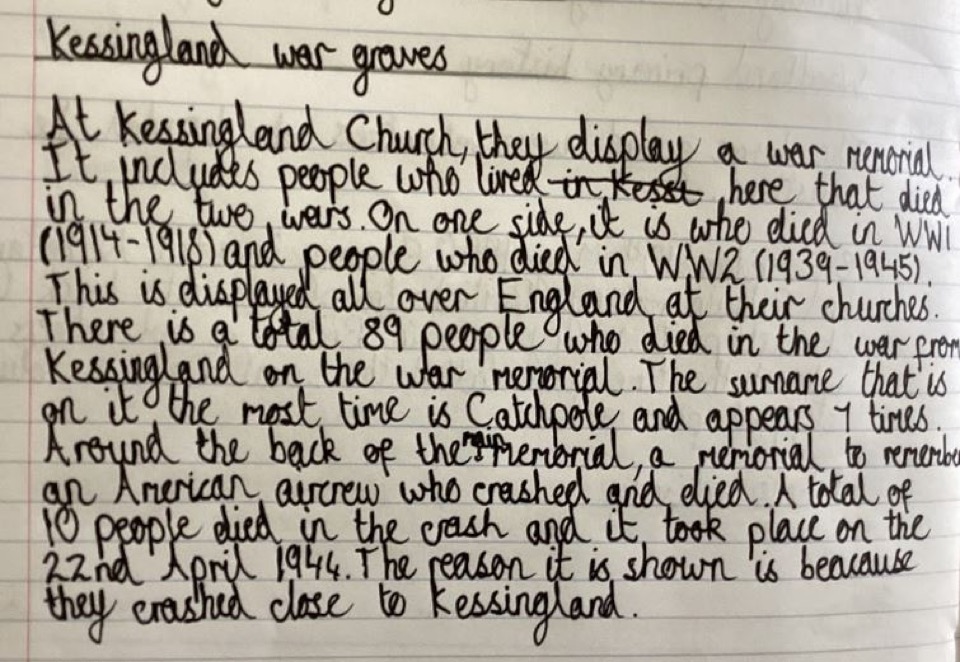 Kessingland war graves
At Kessingland Church, they display a war memorial.
It includes people who lived in Kesst here that died
in the two wars. On one side, it is who died in WW1
(1914-1918) and people who died in WW2 (1939-1945).
This is displayed all over England at their churches.
There is a total 89 people who died in the war from
Kessingland on the war memorial. The surname that is
on it the most time is Catchpole and appears 7 times.
Around the back of the main memorial, a memorial to remembe
an American aircrew who crashed and died. A total of
10 people died in the crash and it took place on the
22nd April 1944. The reason it is shown is beacause
they crashed close to Kessingland.